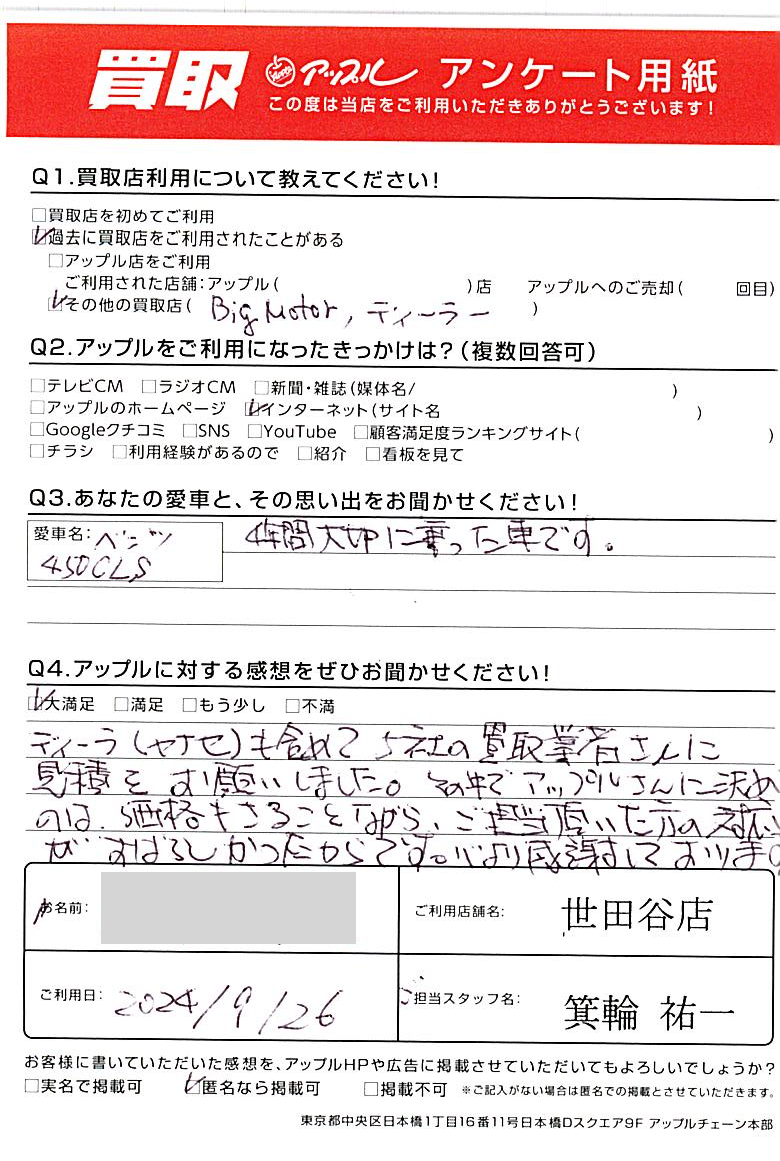 買取 アップル アンケート用紙
この度は当店をご利用いただきありがとうございます!
Q1.買取店利用について教えてください!
□買取店を初めてご利用
☑過去に買取店をご利用されたことがある
□アップル店をご利用
ご利用された店舗:アップル( )店 アップルへのご売却( 回目)
☑その他の買取店( Big Motor, ディーラー )
Q2.アップルをご利用になったきっかけは?(複数回答可)
□テレビCM □ラジオCM □新聞・雑誌(媒体名/ )
□アップルのホームページ ☑インターネット(サイト名 )
□Googleクチコミ □SNS □YouTube □顧客満足度ランキングサイト( )
□チラシ □利用経験があるので □紹介 □看板を見て
Q3.あなたの愛車と、その思い出をお聞かせください!
愛車名:ベンツ 4年間大切に乗った車です。
450CLS
Q4.アップルに対する感想をぜひお聞かせください!
☑大満足 □満足 □もう少し □不満
ディーラ(ヤナセ)も含めて5社の買取業者さんに
見積をお願いしました。その中でアップルさんに決め
のは、価格もさることながら、ご担当頂いた方の対応
がすばらしかったからです。心より感謝しております
お名前: ご利用店舗名: 世田谷店
ご利用日: 2024/9/26 ご担当スタッフ名: 箕輪 祐一
お客様に書いていただいた感想を、アップルHPや広告に掲載させていただいてもよろしいでしょうか?
□実名で掲載可 ☑匿名なら掲載可 □掲載不可 ※ご記入がない場合は匿名での掲載とさせていただきます。
東京都中央区日本橋1丁目16番11号日本橋Dスクエア9F アップルチェーン本部